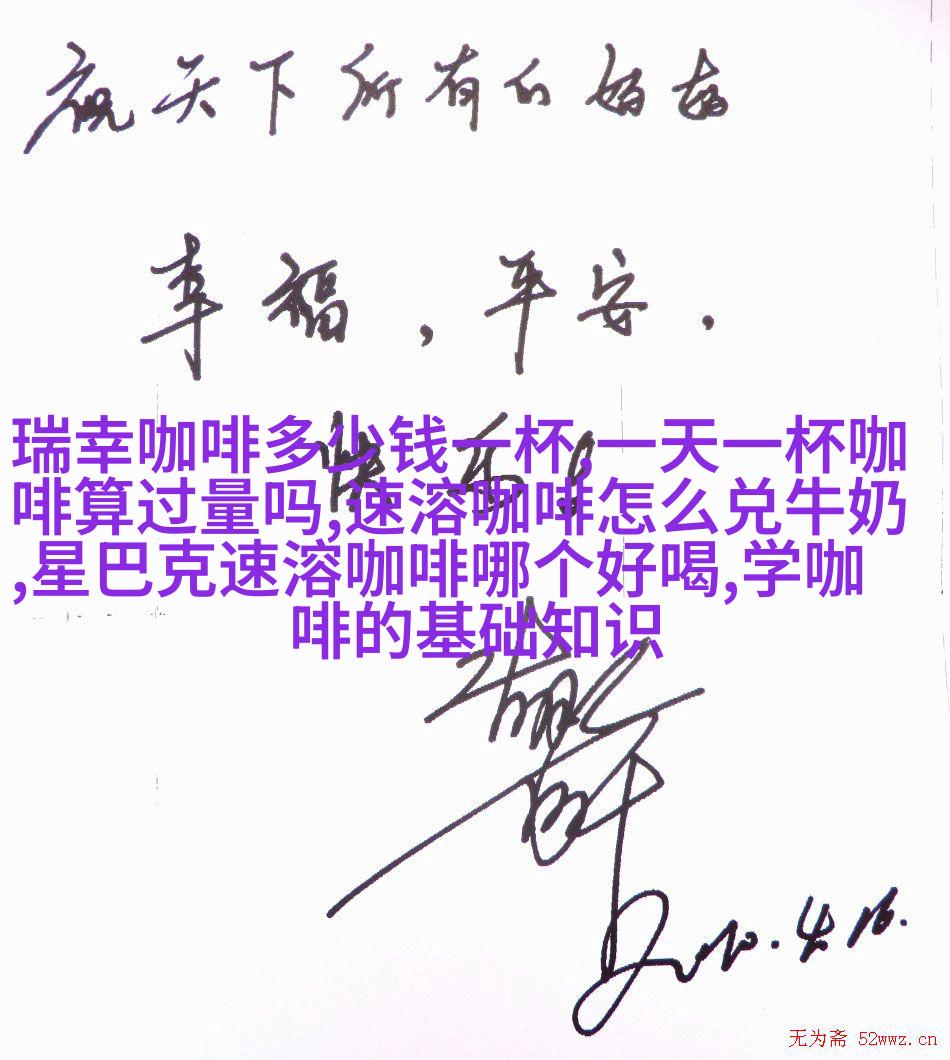 祝天下所有的妈妈
幸福，平安，
瑞幸咖啡多少钱一杯,一天一杯咖
啡算过量吗,速溶咖啡怎么兑牛奶
,星巴克速溶咖啡哪个好喝,学咖
啡的基础知识
2010.4.16.
无为斋 52wwz.cn